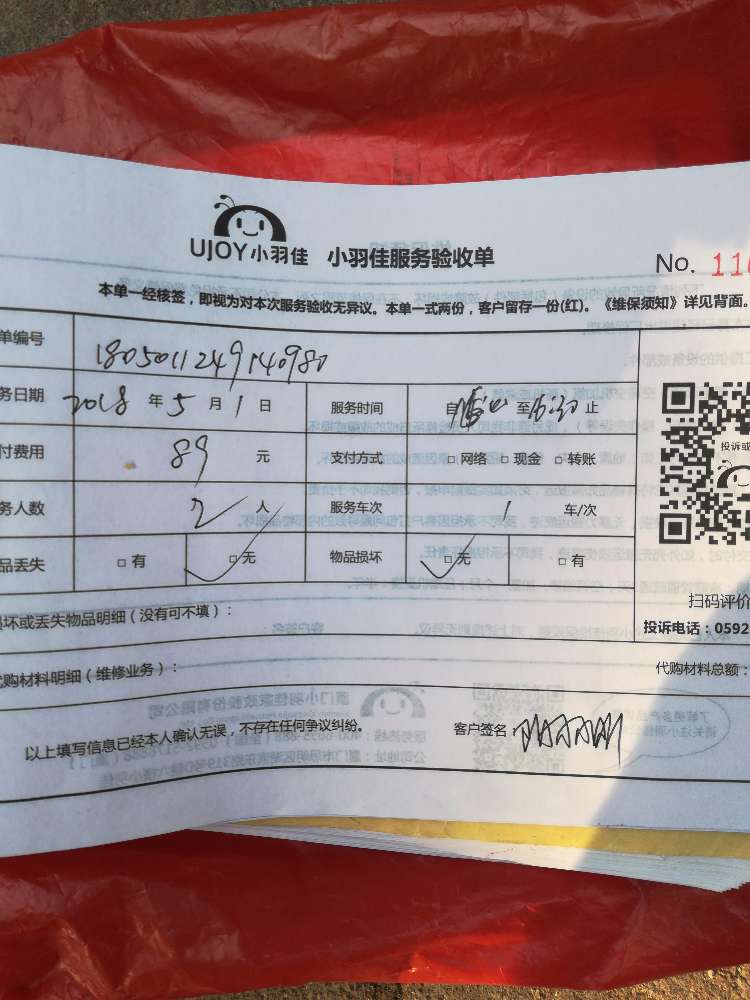 UJOY小羽佳 小羽佳服务验收单
No. 110
本单一经核签，即视为对本次服务验收无异议。本单一式两份，客户留存一份(红)。《维保须知》详见背面。
单编号 1805011249140980
务日期 2018 年 5 月 1 日 服务时间 自 至 止
付费用 89 元 支付方式 □ 网络 □ 现金 □ 转账
投诉或
务人数 2 人 服务车次 1 车/次
品丢失 □ 有 □ 无 物品损坏 □ 无 □ 有
扫码评价
损坏或丢失物品明细（没有可不填）：
投诉电话：0592
代购材料明细（维修业务）：
代购材料总额：
以上填写信息已经本人确认无误，不存在任何争议纠纷。 客户签名：